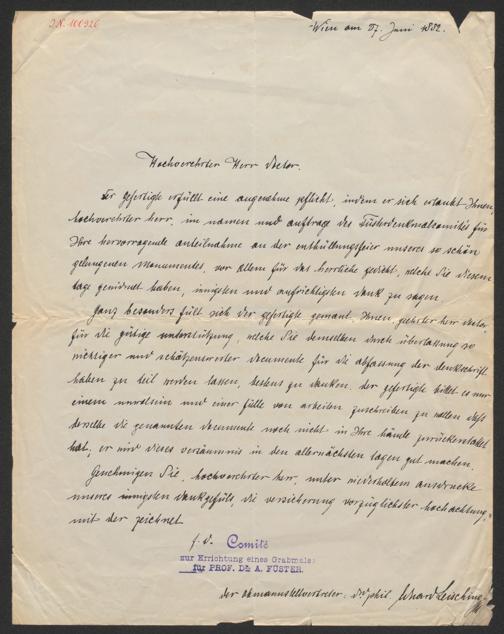 J.N. 100926
Wien am 27. Juni 1882.
Hochverehrter Herr Doctor.
Der gefertigte erfüllt eine angenehme pflicht, indem er sich erlaubt Ihnen,
hochverehrter herr, im namen und auftrage des Füsterdenkmalcomités für
Ihre hervorragende anteilnahme an der enthüllungsfeier unseres so schön
gelungenen monumentes, vor allem für das herrliche gedicht, welche Sie diesem
tage gewidmet haben, innigsten und aufrichtigsten dank zu sagen.
Ganz besonders fült sich der gefertigte gemant, Ihnen, geehrter herr doctor,
für die gütige unterstützung, welche Sie demselben durch überlassung so
wichtiger und schätzenswerter documente für die abfassung der denkschrift
haben zu teil werden lassen, bestens zu danken. der gefertigte bittet es nur
einem unwolsein und einer fülle von arbeiten zuschreiben zu wollen daß
derselbe die genannten documente noch nicht in Ihre hände zurückerstattet
hat, er wird dieses versäumnis in den allernächsten tagen gut machen.
Genehmigen Sie, hochverehrter herr, unter widerholtem ausdrucke
unseres innigsten dankgefüls, die versicherung vorzüglichster hochachtung,
mit der zeichnet
f. d. Comité
zur Errichtung eines Grabmals
für PROF. DR. A. FÜSTER.
der obmannstellvertreter: Dr. phil. Eduard Leisching